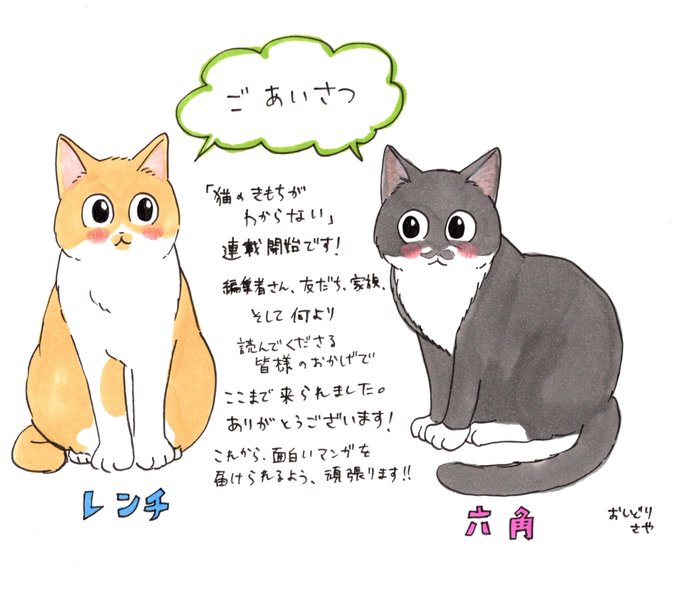 ごあいさつ
「猫のきもちが
わからない」
連載開始です!
編集者さん、友だち、家族、
そして何より
読んでくださる
皆様のおかげで
ここまで来られました。
ありがとうございます!
これから、面白いマンガを
届けられるよう、頑張ります!!
レンチ
六角
おしどり
さや